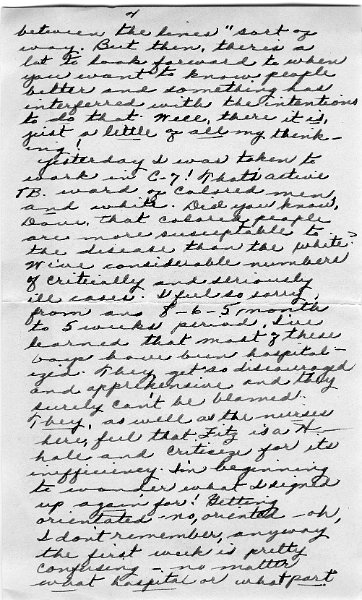 4
between the lines" sort of
way. But then, there's a
lot to look forward to when
you want to know people
better and something has
interferred with the intentions
to do that. Well, there it is,
just a little of all my think-
ing!
Yesterday I was taken to
work in C-7! That's active
TB. ward of colored men,
and white. Did you know,
Dave, that colored people
are more susceptable to
the disease than the white?
We've considerable numbers
of critically and seriously
ill cases. I feel so sorry,
from an 8-6-5 month
to 5 weeks period, I've
learned that most of these
boys have been hospital-
ized. They get so discouraged
and apprehensive and they
surely can't be blamed.
They, as well as the nurses
here, feel that Fitz is a H--
hole and criticize for its
inefficiency. I'm beginning
to wonder what I signed
up again for! Getting
orientated no, oriented - oh,
I don't remember, anyway
the first week is pretty
confusing - no matter
what hospital or what part